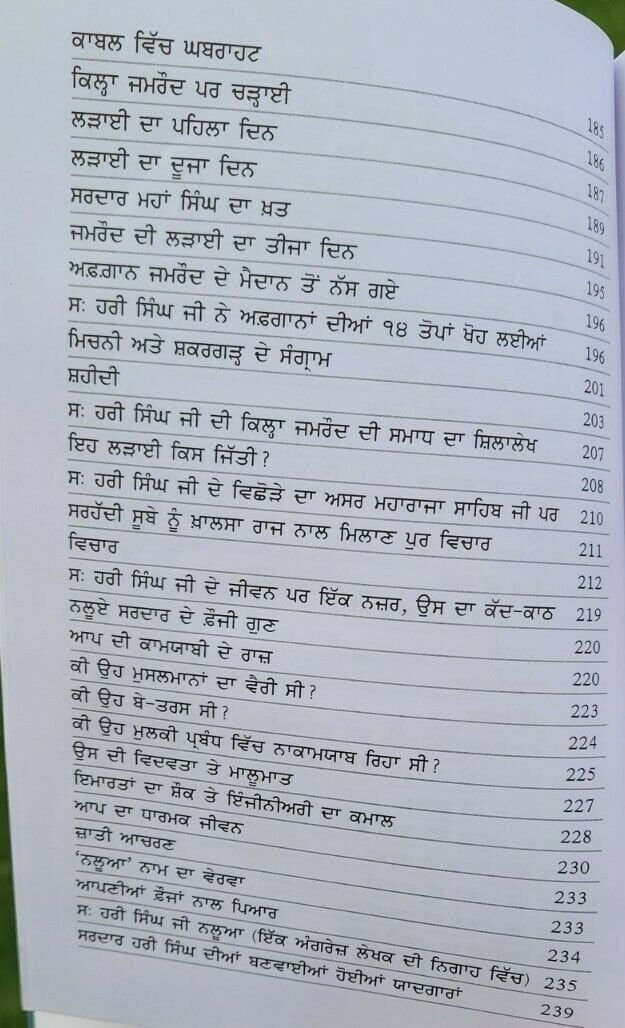 ਕਾਬਲ ਵਿੱਚ ਘਬਰਾਹਟ 185
ਕਿਲ੍ਹਾ ਜਮਰੌਦ ਪਰ ਚੜ੍ਹਾਈ 186
ਲੜਾਈ ਦਾ ਪਹਿਲਾ ਦਿਨ 187
ਲੜਾਈ ਦਾ ਦੂਜਾ ਦਿਨ 189
ਸਰਦਾਰ ਮਹਾਂ ਸਿੰਘ ਦਾ ਖ਼ਤ 191
ਜਮਰੌਦ ਦੀ ਲੜਾਈ ਦਾ ਤੀਜਾ ਦਿਨ 195
ਅਫ਼ਗਾਨ ਜਮਰੌਦ ਦੇ ਮੈਦਾਨ ਤੋਂ ਨੱਸ ਗਏ 196
ਸਃ ਹਰੀ ਸਿੰਘ ਜੀ ਨੇ ਅਫ਼ਗਾਨਾਂ ਦੀਆਂ ੧੪ ਤੋਪਾਂ ਖੋਹ ਲਈਆਂ 196
ਮਿਚਨੀ ਅਤੇ ਸ਼ਕਰਗੜ੍ਹ ਦੇ ਸੰਗ੍ਰਾਮ 201
ਸ਼ਹੀਦੀ 203
ਸਃ ਹਰੀ ਸਿੰਘ ਜੀ ਦੀ ਕਿਲ੍ਹਾ ਜਮਰੌਦ ਦੀ ਸਮਾਧ ਦਾ ਸ਼ਿਲਾਲੇਖ 207
ਇਹ ਲੜਾਈ ਕਿਸ ਜਿੱਤੀ ? 208
ਸਃ ਹਰੀ ਸਿੰਘ ਜੀ ਦੇ ਵਿਛੋੜੇ ਦਾ ਅਸਰ ਮਹਾਰਾਜਾ ਸਾਹਿਬ ਜੀ ਪਰ 210
ਸਰਹੱਦੀ ਸੂਬੇ ਨੂੰ ਖ਼ਾਲਸਾ ਰਾਜ ਨਾਲ ਮਿਲਾਣ ਪੁਰ ਵਿਚਾਰ 211
ਵਿਚਾਰ 212
ਸਃ ਹਰੀ ਸਿੰਘ ਜੀ ਦੇ ਜੀਵਨ ਪਰ ਇੱਕ ਨਜ਼ਰ, ਉਸ ਦਾ ਕੱਦ-ਕਾਠ 219
ਨਲੂਏ ਸਰਦਾਰ ਦੇ ਫ਼ੌਜੀ ਗੁਣ 220
ਆਪ ਦੀ ਕਾਮਯਾਬੀ ਦੇ ਰਾਜ਼ 220
ਕੀ ਉਹ ਮੁਸਲਮਾਨਾਂ ਦਾ ਵੈਰੀ ਸੀ ? 223
ਕੀ ਉਹ ਬੇ-ਤਰਸ ਸੀ ? 224
ਕੀ ਉਹ ਮੁਲਕੀ ਪ੍ਰਬੰਧ ਵਿੱਚ ਨਾਕਾਮਯਾਬ ਰਿਹਾ ਸੀ ? 225
ਉਸ ਦੀ ਵਿਦਵਤਾ ਤੇ ਮਾਲੂਮਾਤ 227
ਇਮਾਰਤਾਂ ਦਾ ਸ਼ੌਕ ਤੇ ਇੰਜੀਨੀਅਰੀ ਦਾ ਕਮਾਲ 228
ਆਪ ਦਾ ਧਾਰਮਕ ਜੀਵਨ 230
ਜ਼ਾਤੀ ਆਚਰਣ 233
'ਨਲੂਆ' ਨਾਮ ਦਾ ਵੇਰਵਾ 233
ਆਪਣੀਆਂ ਫ਼ੌਜਾਂ ਨਾਲ ਪਿਆਰ 234
ਸਃ ਹਰੀ ਸਿੰਘ ਜੀ ਨਲੂਆ (ਇੱਕ ਅੰਗਰੇਜ਼ ਲੇਖਕ ਦੀ ਨਿਗਾਹ ਵਿੱਚ) 235
ਸਰਦਾਰ ਹਰੀ ਸਿੰਘ ਦੀਆਂ ਬਣਵਾਈਆਂ ਹੋਈਆਂ ਯਾਦਗਾਰਾਂ 239